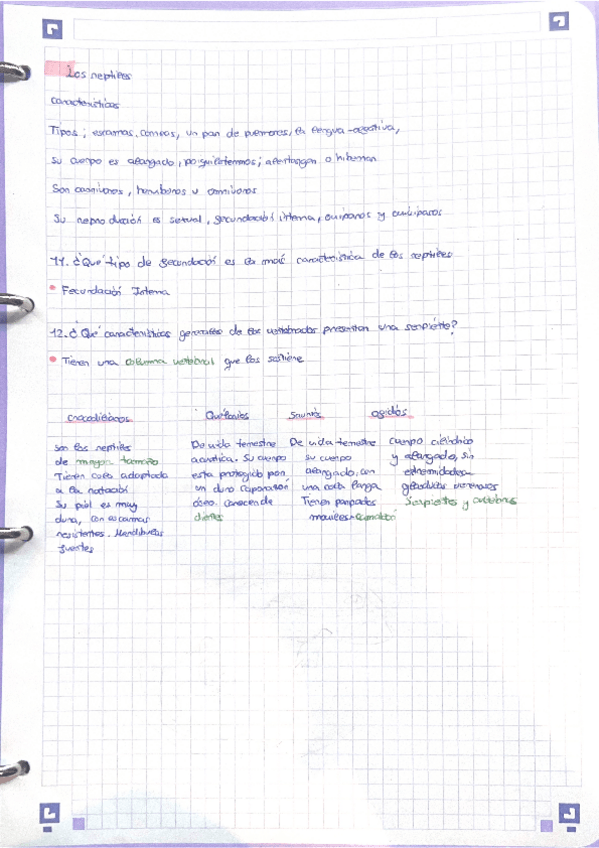 Los reptiles
características
Tipos; escamas, corneos, un par de pulmones, la lengua -olfativa,
Su cuerpo es alargado, poiquilotermos; aletargan o hibernan
Son carnívoros, herbívoros u omnívoros
Su reproducción es sexual, fecundación interna, ovíparos y
11. ¿Qué tipo de fecundación es la más característica de los reptiles
• Fecundación Interna
12. ¿Qué características generales de los vertebrados presentan una serpiente?
• Tienen una columna vertebral que los sostiene
crocodilianos
Son los reptiles
de mayor tamaño
Tienen cola adaptada
a la natación
Su piel es muy
dura, con escamas
resistentes. Mandíbulas
fuertes
Quelonios
De vida terrestre
acuática. Su cuerpo
esta protegido por
un duro caparazón
óseo. carece de
dientes
Saurios
De vida terrestre
su cuerpo
alargado, con
una cola larga
Tienen parpados
móviles-camaleón
ofidios
cuerpo cilíndrico
y alargado, sin
extremidades
Serpientes y culebras